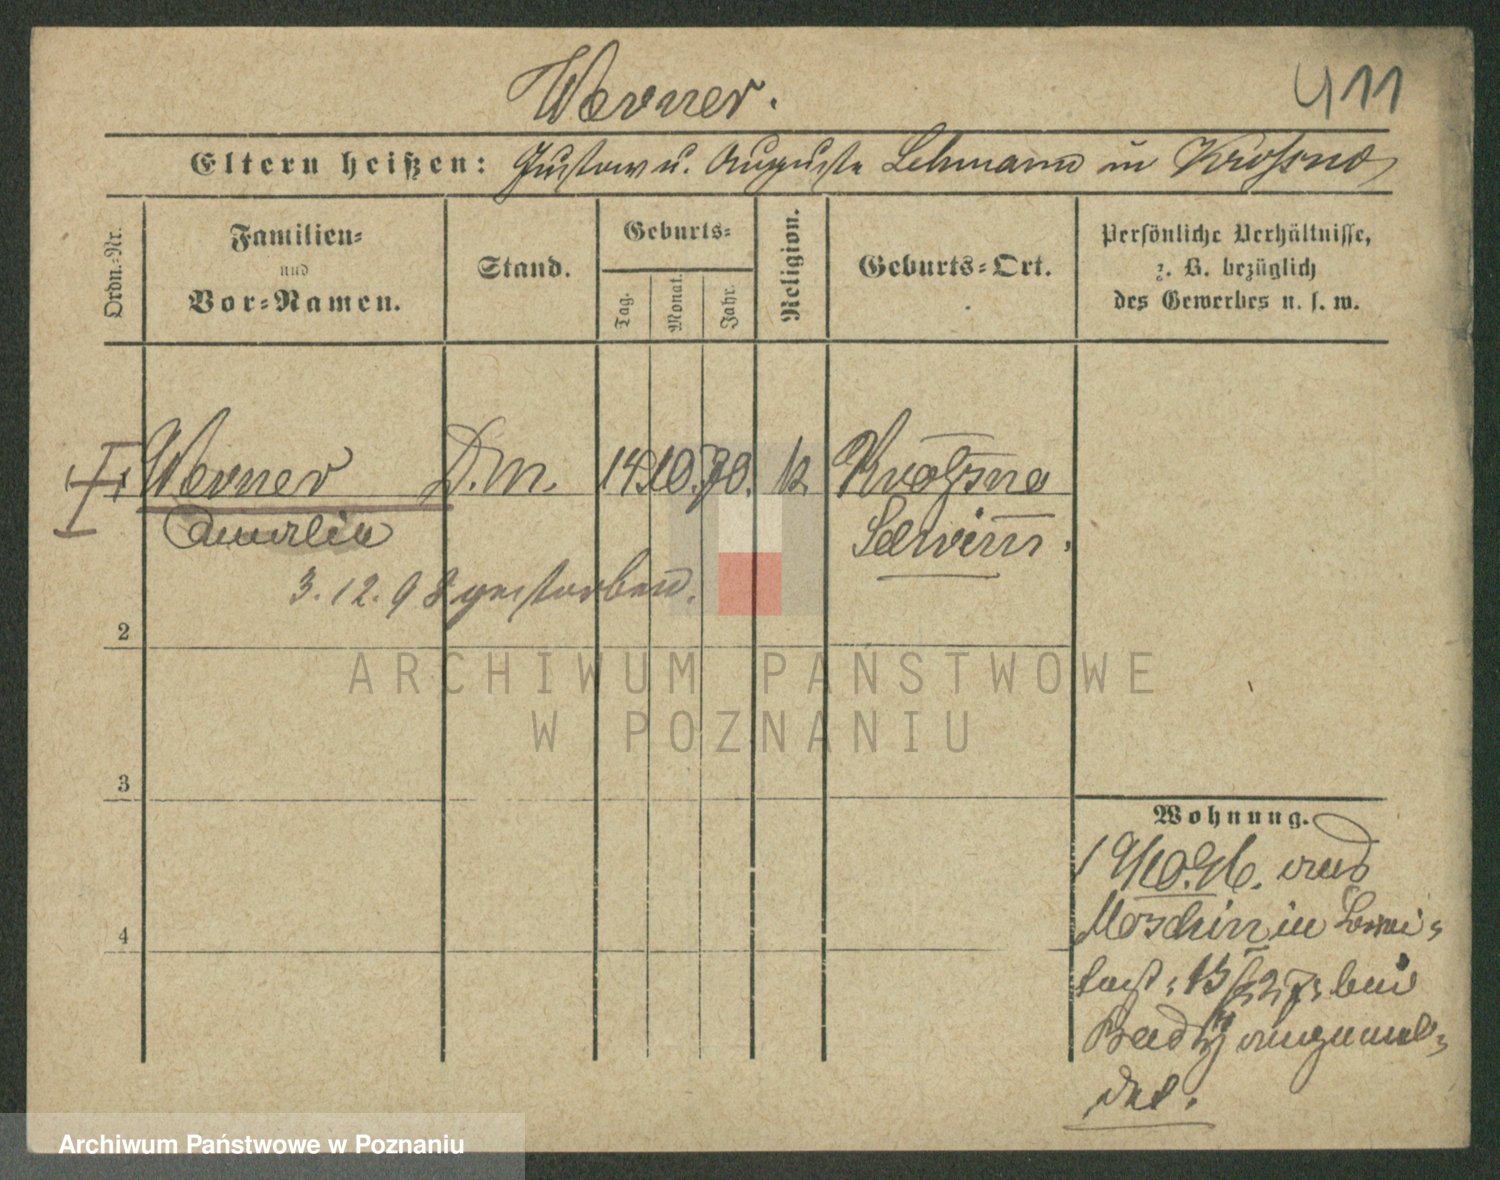 Werner.
411
Eltern heißen: Gustav u. Auguste Lehmann in Krosno
Ordn.-Nr.
Familien-
und
Vor-Namen.
Stand.
Geburts-
Tag.
Monat.
Jahr.
Religion.
Geburts-Ort.
Persönliche Verhältnisse,
z. B. bezüglich
des Gewerbes u. s. w.
Werner D.M. 14. 10. 70. k. Krosno
Schrimm.
3. 12. 98 gestorben.
2
3
4
Wohnung.
19/10. 96. aus
Moschin in
bei
angemel-
det.
ARCHIWUM PAŃSTWOWE
W POZNANIU
Archiwum Państwowe w Poznaniu